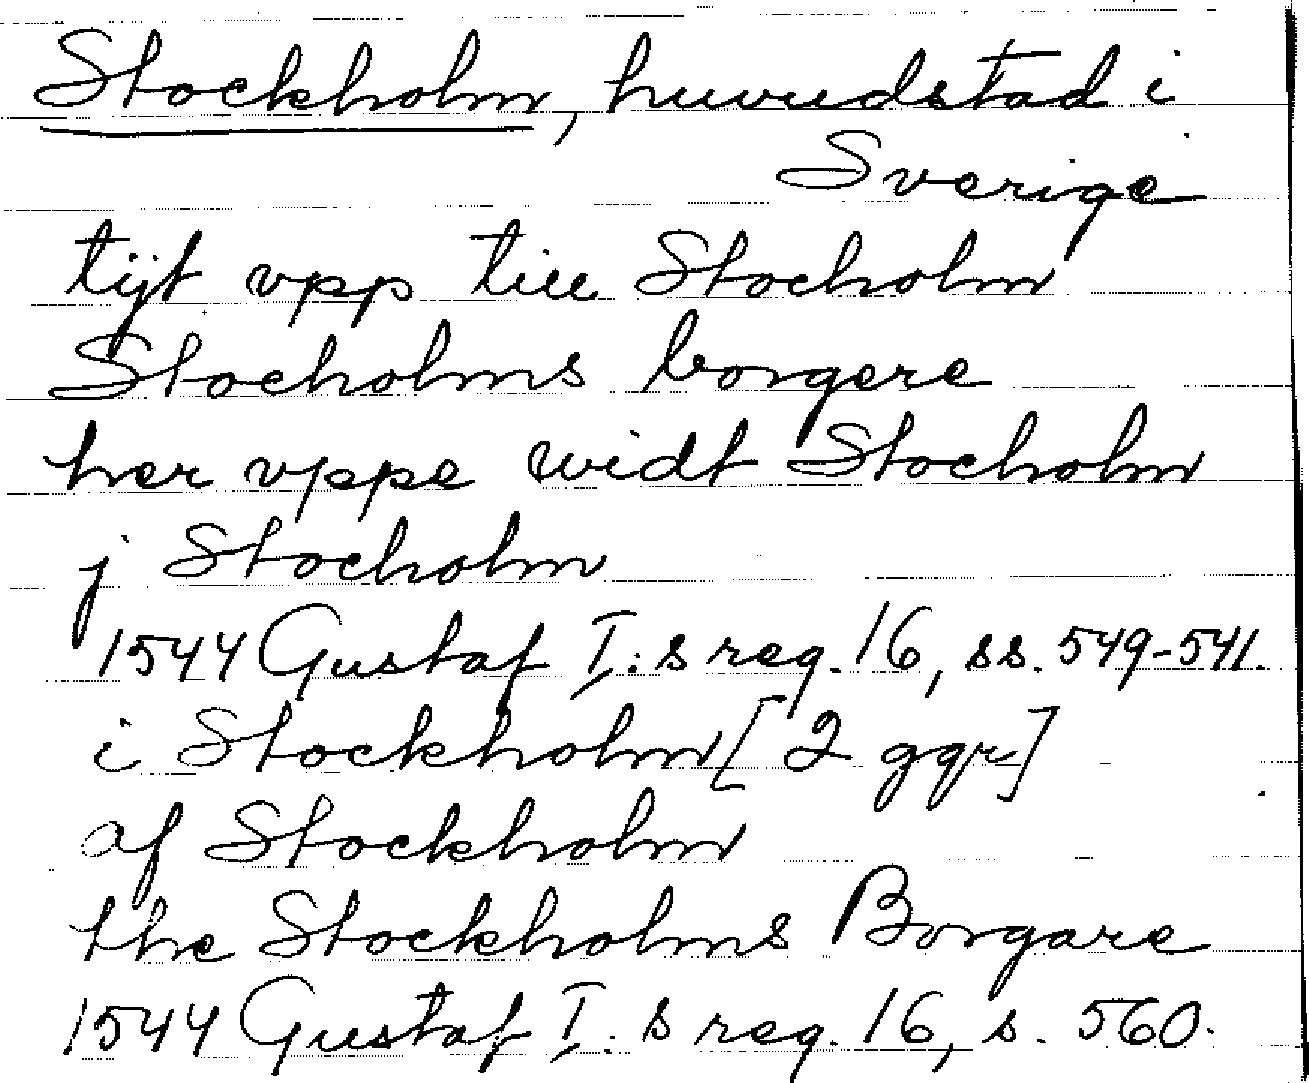 Stockholm, huvudstad i
Sverige
tijt vpp till Stocholm
Stocholms borgere
her vppe widt Stocholm
j Stocholm
1544 Gustaf I:s reg. 16, ss. 549-541.
i Stockholm [2 ggr]
af Stockholm
the Stockholms Borgare
1544 Gustaf I:s reg. 16, s. 560.